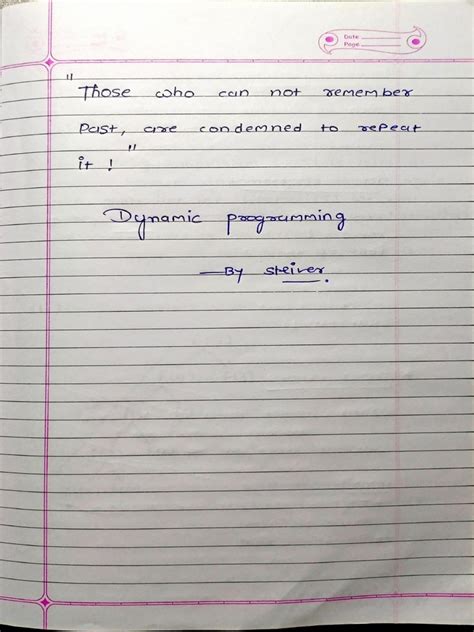 Date
Page
"Those who can not remember
Past, are condemned to repeat
it!"
Dynamic programming
—By steiver.